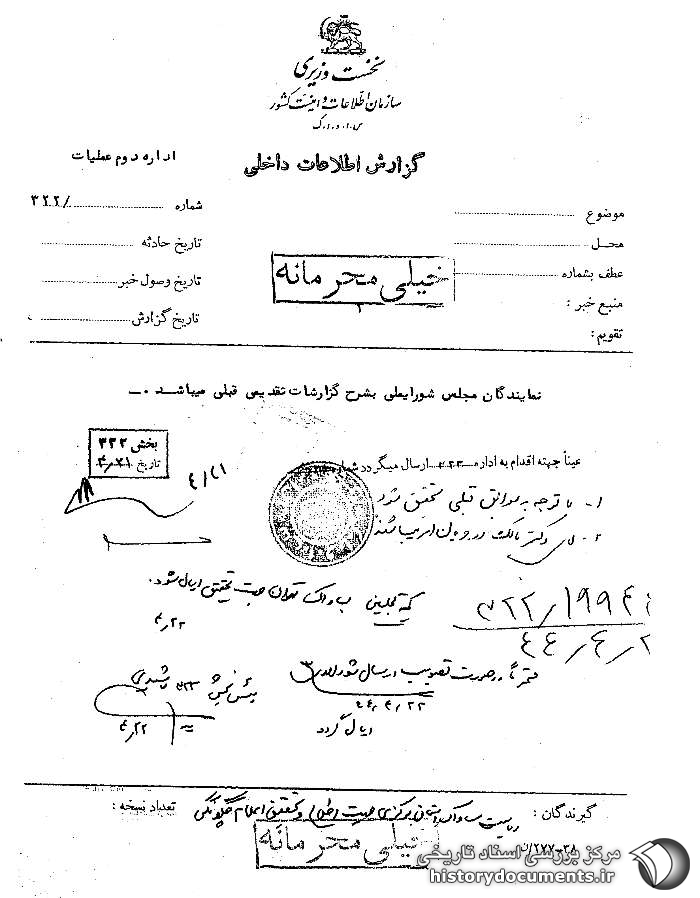 نخست وزیری
سازمان اطلاعات و امنیت کشور
س.ا.و.ا.ک
گزارش اطلاعات داخلی
اداره دوم عملیات
شماره ۳۲۲/
تاریخ حادثه
تاریخ وصول خبر
تاریخ گزارش
موضوع
محل
عطف بشماره
منبع خبر :
تقویم :
خیلی محرمانه
نمایندگان مجلس شورایملی بشرح گزارشات تقدیمی قبلی میباشد .
بخش ۳۲۲
تاریخ ۴/۲۱
۴/۲۱
عیناً جهته اقدام به اداره ارسال میگردد
۱- با توجه به سوابق قبلی تحقیق شود
۲- دکتر در جریان امر میباشند
جهت تحقیق ارسال شود.
۴/۲۲
۳۲۲/۱۹۹۴
۴۴/۴/۲
در صورت تصویب ارسال
۴۴/۴/۲۲
ارسال گردد
۴/۲۲
گیرندگان : ریاست ساواک استان مرکزی جهت اطلاع و تحقیق و اعلام چگونگی
تعداد نسخه :
خیلی محرمانه
۲۷۷-۳۸
مرکز بررسی اسناد تاریخی
historydocuments.ir